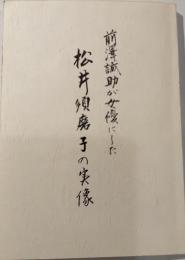 前澤誠助が女優にした
松井須磨子の実像